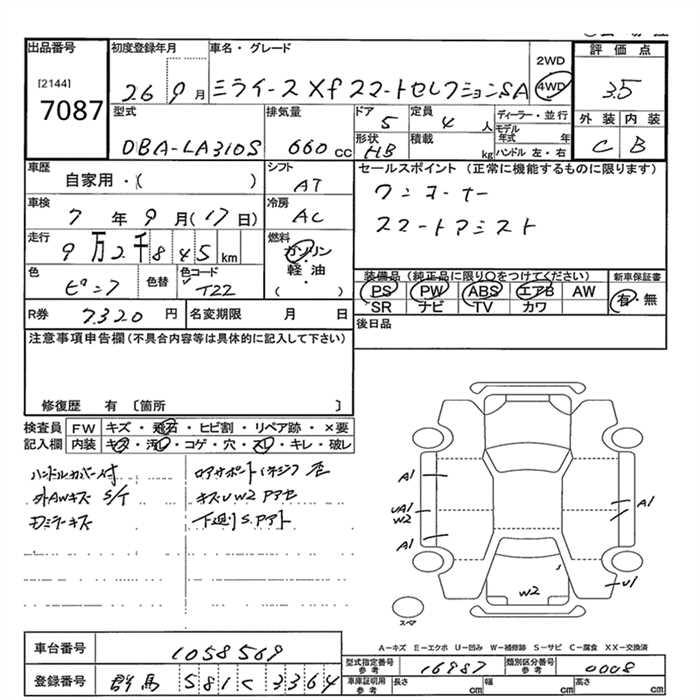 出品番号
[2144]
7087
初度登録年月
26 9月
車名・グレード
ミライース Xf スマートセレクションSA
2WD
4WD
評価点
3.5
外装 内装
C B
型式
DBA-LA310S
排気量
660 cc
ドア
5
定員
4 人
形状
HB
積載
kg
ディーラー・並行
モデル年式 年
ハンドル 左・右
車歴
自家用・( )
シフト
AT
車検
7年9月(17日)
冷房
AC
走行
9万2千845 km
燃料
ガソリン・軽油・( )
色
ピンク
色替
色コード
T22
セールスポイント (正常に機能するものに限ります)
ワンオーナー
スマートアシスト
装備品 (純正品に限り○をつけてください)
PS PW ABS エアB AW
SR ナビ TV カワ
新車保証書
有・無
R券 7320 円
名変期限 月 日
後日品
注意事項申告欄 (不具合内容等は具体的に記入して下さい)
修復歴 有 〔箇所 〕
検査員記入欄
FW キズ・飛石・ヒビ割・リペア跡・×要
内装 キズ・汚レ・コゲ・穴・スレ・キレ・破レ
ハンドルカバー付
外AWキズ S/T
キズUW2 Pアセ
下廻りS.Pアト
A1
UA1
W2
A1
A1
W2
U1
スペア
A―キズ E―エクボ U―凹み W―補修跡 S―サビ C―腐食 XX―交換済
車台番号 1058569
登録番号 群馬 581 く 3364
型式指定番号 参考 16987
類別区分番号 参考 0008
車庫証明用 参考 長さ cm 幅 cm 高さ cm